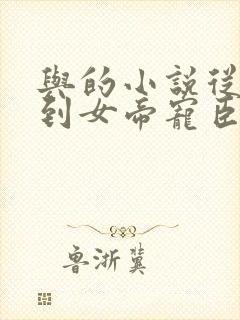 與的小說從
到女帝寵臣
魯浙冀